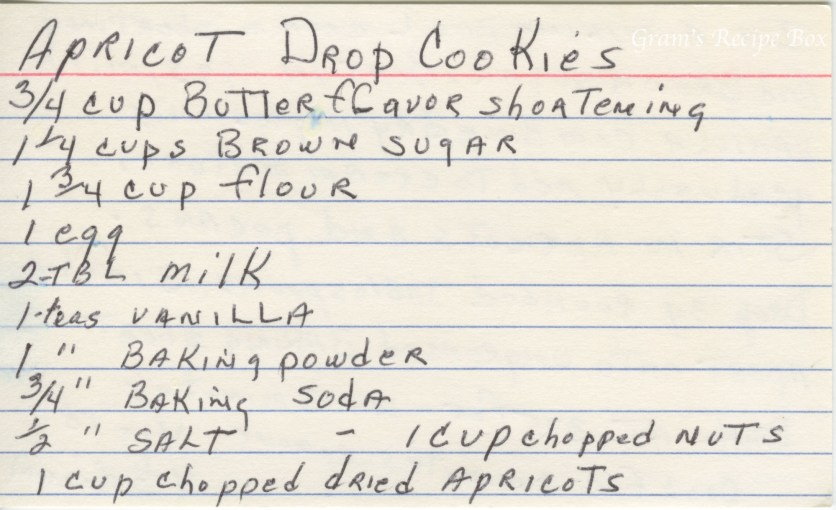 Gram's Recipe Box
APRICOT DROP COOKIES
3/4 cup BUTTER flavor shoRTening
1 1/4 cups BROWN sugAR
1 3/4 cup flouR
1 egg
2-TBL milk
1-teas VANILLA
1 " BAKINg powdeR
3/4" BAKINg SodA
1/2 " SALT - 1 cup chopped NUTS
1 cup chopped dRied APRICOTS